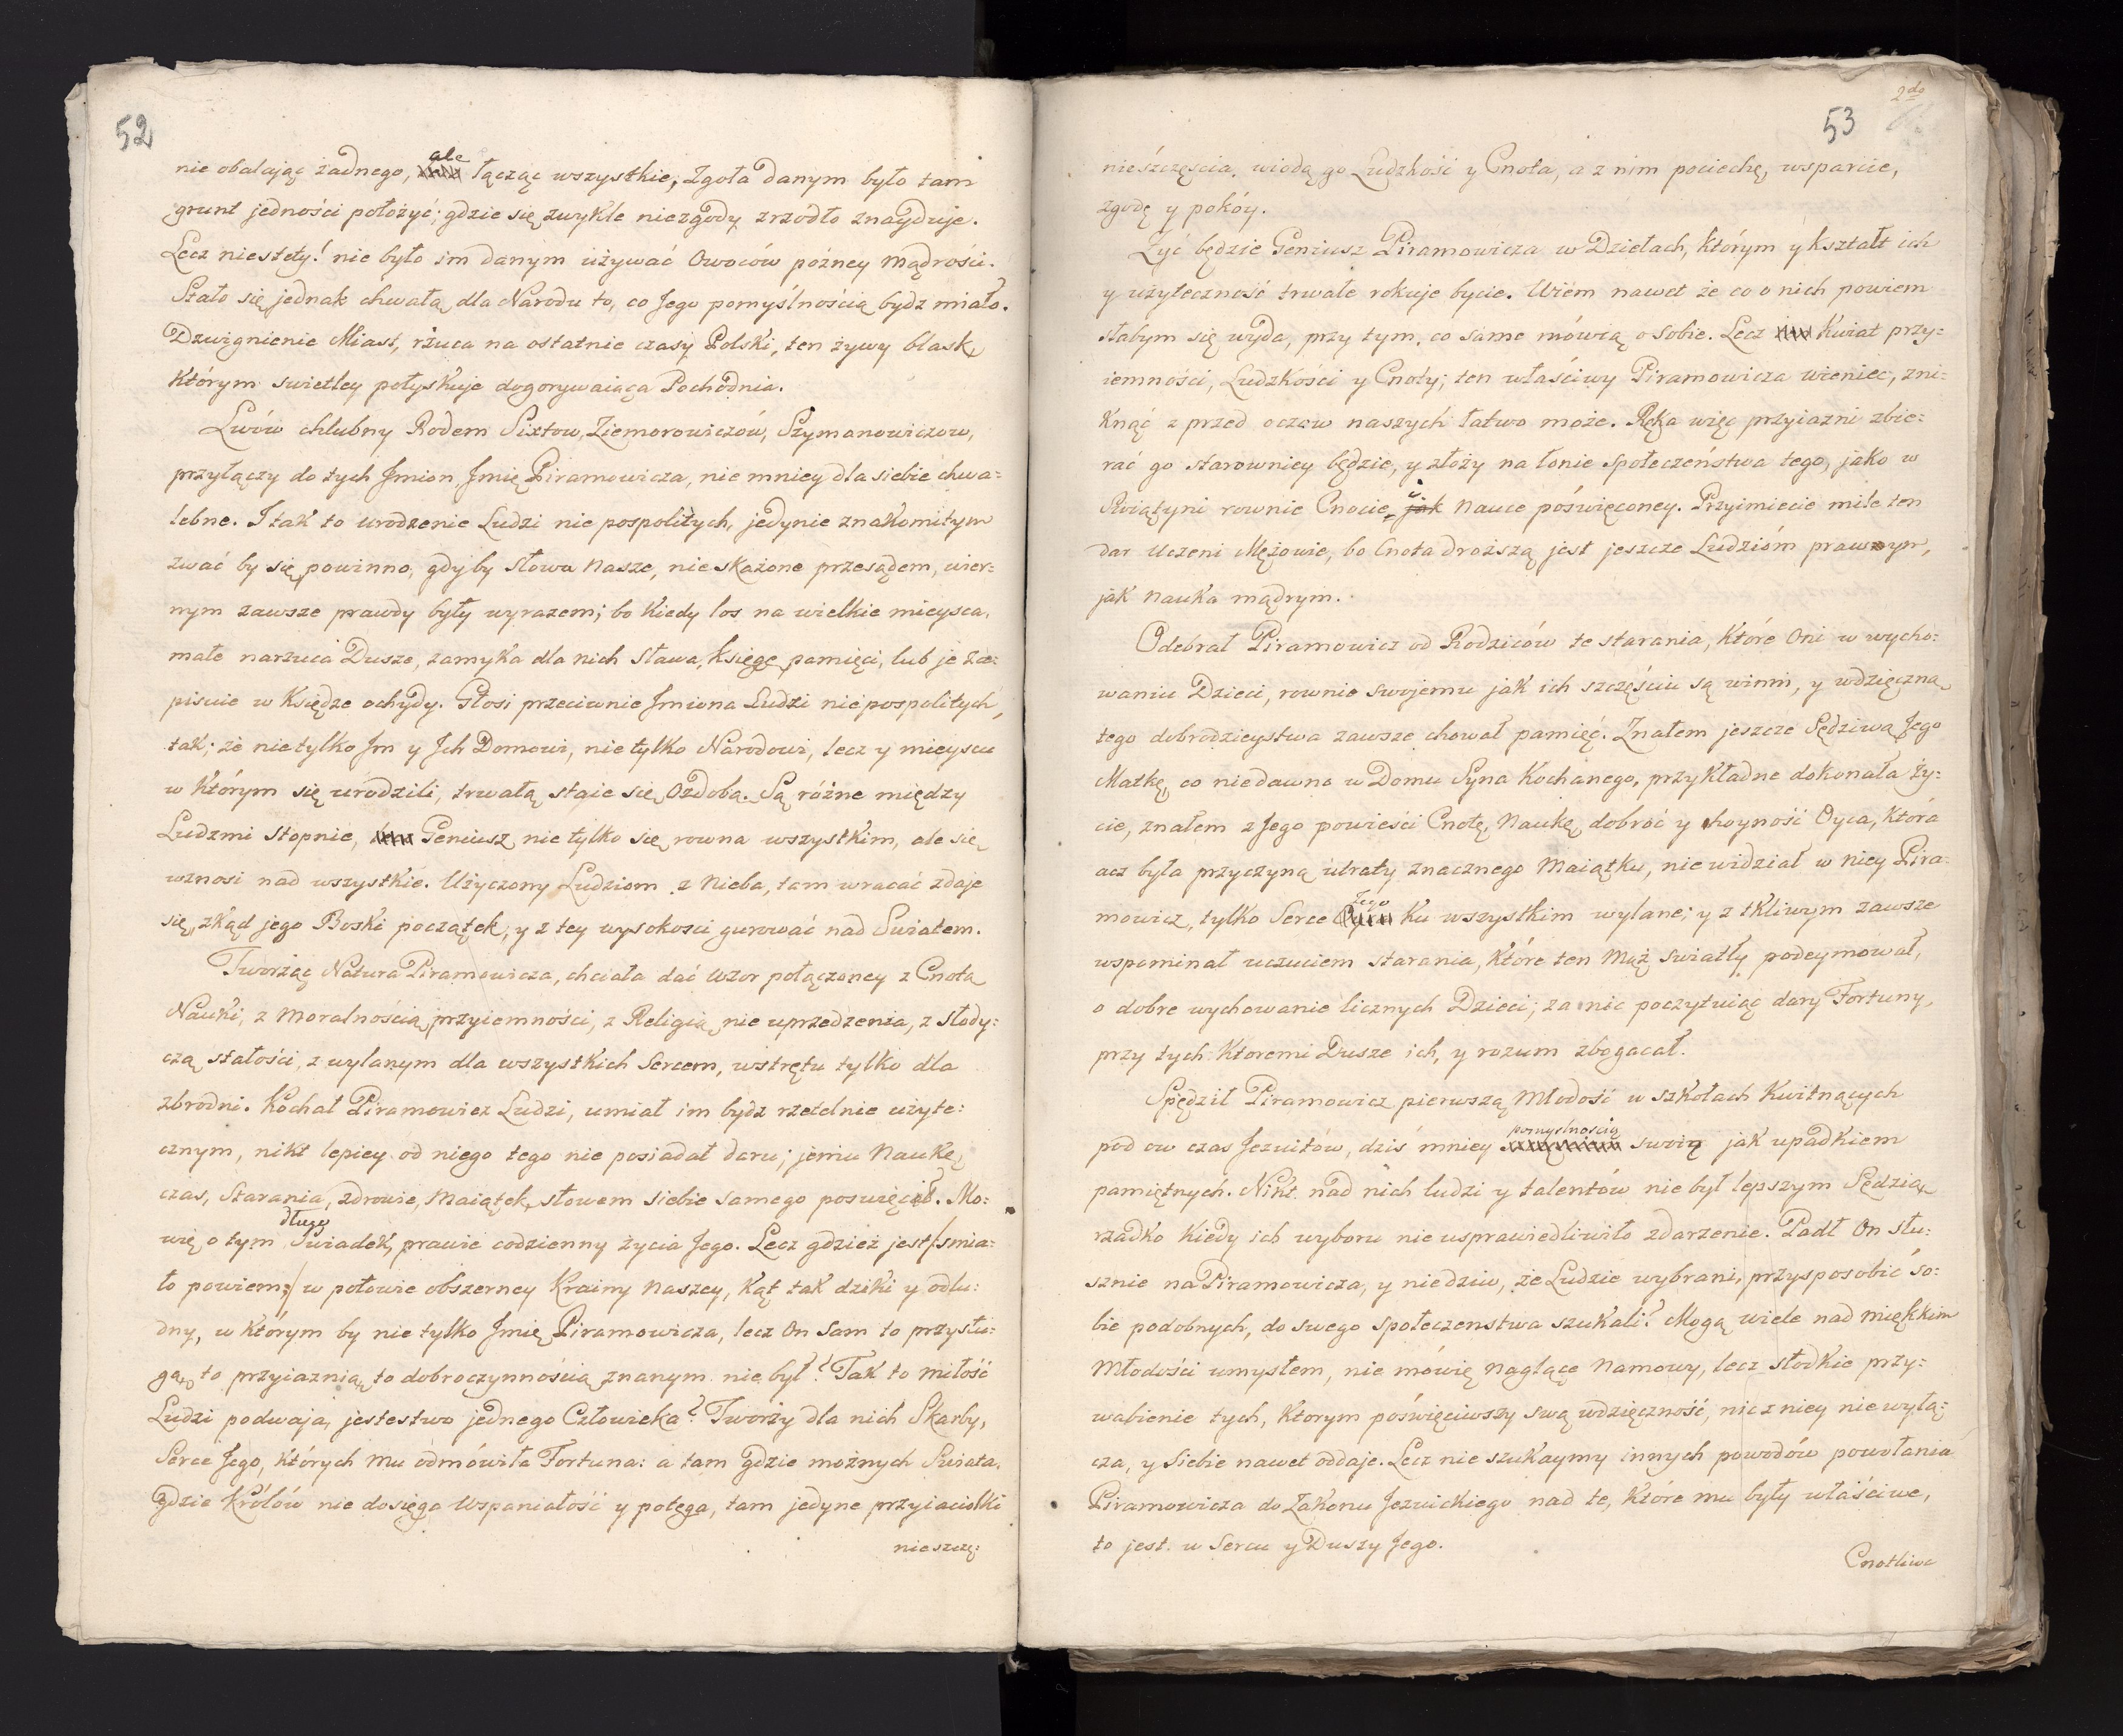 52
nie obalając żadnego, ale łącząc wszystkie; Zgoła danym było tam
grunt jedności położyć; gdzie się zwykle niezgody zrzódło znayduje.
Lecz niestety! nie było im danym używać Owoców pózney Mądrości.
Stało się jednak chwałą dla Narodu to, co Jego pomyślnością bydz miało.
Dzwignienie Miast, rzuca na ostatnie czasy Polski, ten żywy blask,
Którym swietley połyskuje dogorywaiąca Pochodnia.
Lwów chlubny Rodem Sixtow, Ziemorowiczów, Szymanowiczow,
przyłączy do tych Jmion, Jmię Piramowicza, nie mniey dla siebie chwa=
lebne. I tak to urodzenie Ludzi nie pospolitych, jedynie znakomitym
zwać by się powinno, gdyby słowa Nasze, nie skażone przesądem, wier=
nym zawsze prawdy były wyrazem; bo Kiedy los na wielkie mieysca,
małe narzuca Dusze, zamyka dla nich Sława, księgę pamięci, lub je za=
pisuie w Księdze ochydy. Głosi przeciwnie Jmiona Ludzi nie pospolitych,
tak; że nie tylko Jm y Jch Domowi, nie tylko Narodowi, lecz y mieyscu
w Którym się urodzili, trwałą staie się Ozdobą. Są różne między
Ludzmi stopnie, Geniusz nie tylko się rowna wszystkim, ale się
wznosi nad wszystkie. Użyczony Ludziom z Nieba, tam wracać zdaje
się, zkąd jego Boski początek, y z tey wysokosci gurować nad Swiatem.
Tworząc Natura Piramowicza, chciała dać Wzor połączoney z Cnotą
Nauki, z Moralnością przyiemności, z Religią nie uprzedzenia, z słody=
czą stałości, z wylanym dla wszystkich Sercem, wstrętu tylko dla
zbrodni. Kochał Piramowicz Ludzi, umiał im bydz rzetelnie użyte=
cznym, nikt lepiey od niego tego nie posiadał daru; jemu Naukę,
czas, Starania, zdrowie, Maiątek, słowem siebie samego poswięcił. Mo=
długo
wię o tym Swiadek, prawie codzienny życia Jego. Lecz gdzież jest /smia=
ło powiem:/ w połowie obszerney Krainy Naszey, Kąt tak dziki y odlu=
dny, w Którym by nie tylko Jmię Piramowicza, lecz On Sam to przysłu=
gą, to przyiaznią, to dobroczynnością znanym nie był? Tak to miłość
Ludzi podwaja, jestestwo jednego Człowieka? Tworzy dla nich Skarby,
Serce Jego, których Mu odmówiła Fortuna: a tam gdzie możnych Swiata,
Gdzie Królów nie dosięga Wspaniałość y potęga, tam jedyne przyiaciołki
nieszczę=
2do
53
nieszczęscia, wiodą go Ludzkość y Cnota, a z nim pociechę, wsparcie,
zgodę y pokóy.
Żyć będzie Geniusz Piramowicza w Dziełach, którym y kształt ich
y użyteczność trwałe rokuje bycie. Wiem nawet że co o nich powiem
słabym się wyda, przy tym, co same mówią o sobie. Lecz Kwiat przy=
iemności, Ludzkości y Cnoty; ten właściwy Piramowicza wieniec, zni=
knąć z przed oczow naszych łatwo może. Ręka więc przyiazni zbie=
rać go starowniey będzie, y złoży na łonie społeczeństwa tego, jako w
Swiątyni rownie Cnocie, i jak Nauce póświęconey. Przyimiecie mile ten
dar Uczeni Mężowie, bo Cnota droższą jest jeszcze Ludzióm prawym,
jak Nauka mądrym.
Odebrał Piramowicz od Rodziców te starania, Które Oni w wycho=
waniu Dzieci, rownie swojemu jak ich szczęściu są winni, y wdzięczną
tego dobrodzieystwa zawsze chował pamięć. Znałem jeszcze Sędziwą Jego
Matkę, co niedawno w Domu Syna Kochanego, przykładne dokonała ży=
cie, znałem z Jego powieści Cnotę, Naukę, dobroć y hoyność Oyca, Która
acz była przyczyną utraty znacznego Maiątku, nie widział w niey Pira=
mowicz, tylko Serce Jego Ku wszystkim wylane; y z tkliwym zawsze
wspominał uczuciem starania, Które ten Mąż swiatły podeymował,
o dobre wychowanie licznych Dzieci; za nic poczytuiąc dary Fortuny,
przy tych Ktoremi Dusze ich, y rozum zbogacał.
Spędził Piramowicz pierwszą Młodość w szkołach Kwitnących
pomyslnoscią
pod ow czas Jezuitów, dziś mniey swoią jak upadkiem
pamiętnych. Nikt nad nich ludzi y talentów nie był lepszym Sędzią,
rzadko Kiedy ich wyboru nie usprawiedliwiło zdarzenie. Padł On słu=
sznie na Piramowicza, y nie dziw, że Ludzie wybrani, przysposobić so=
bie podobnych, do swego społeczenstwa szukali? Mogą wiele nad miękkim
Młodości umysłem, nie mówię naglące Namowy, lecz słodkie przy=
wabienie tych, Ktorym póświęciwszy swą wdzięczność, nic z niey nie wyłą=
cza, y Siebie nawet oddaje. Lecz nie szukaymy innych powodów powołania
Piramowicza do Zakonu Jezuickiego nad te, Które mu były właściwe,
to jest w Sercu y Duszy Jego.
Cnotliwe